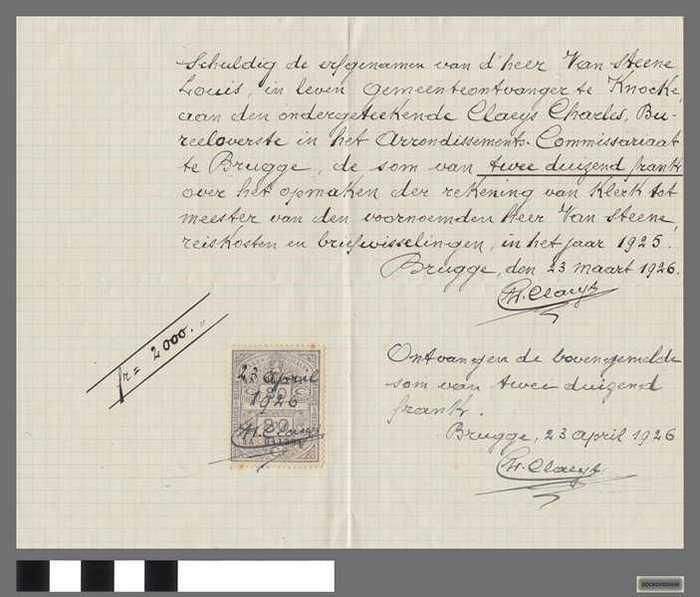 Schuldig de erfgenamen van d'heer Van Steene
Louis, in leven gemeenteontvanger te Knocke,
aan den ondergeteekende Claeys Charles, Bu-
reeloverste in het Arrondissements-Commissariaat
te Brugge, de som van twee duizend frank
over het opmaken der rekening van klerk tot
meester van den voornoemden Heer Van Steene,
reiskosten en briefwisselingen, in het jaar 1925.
Brugge, den 23 maart 1926.
Ch. Claeys
fr = 2000.„
23 april
1926
Ch. Claeys
Ontvangen de bovengemelde
som van twee duizend
frank.
Brugge, 23 april 1926
Ch. Claeys